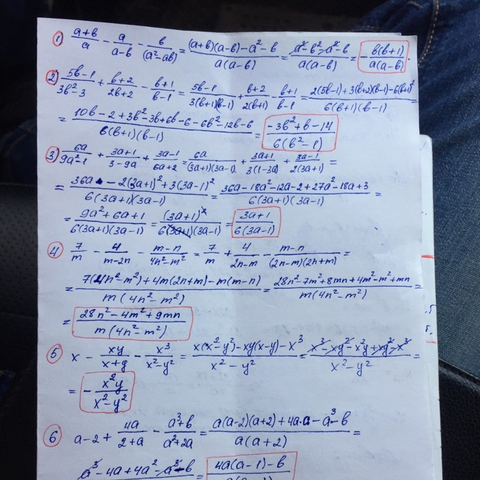 1) (a+b)/a - a/(a-b) - b/(a²-ab) = ((a+b)(a-b)-a²-b)/(a(a-b)) = (a²-b²-a²-b)/(a(a-b)) = -b(b+1)/(a(a-b)).
2) (5b-1)/(3b²-3) + (b+2)/(2b+2) - (b+1)/(b-1) = (5b-1)/(3(b+1)(b-1)) + (b+2)/(2(b+1)) - (b+1)/(b-1) = (2(5b-1)+3(b+2)(b-1)-6(b+1)²)/(6(b+1)(b-1)) =
= (10b-2+3b²-3b+6b-6-6b²-12b-6)/(6(b+1)(b-1)) = (-3b²+b-14)/(6(b²-1))
3) 6a/(9a²-1) + (3a+1)/(3-9a) + (3a-1)/(6a+2) = 6a/((3a+1)(3a-1)) + (3a+1)/(3(1-3a)) + (3a-1)/(2(3a+1)) =
= (36a-2(3a+1)²+3(3a-1)²)/(6(3a+1)(3a-1)) = (36a-18a²-12a-2+27a²-18a+3)/(6(3a+1)(3a-1)) =
= (9a²+6a+1)/(6(3a+1)(3a-1)) = (3a+1)²/(6(3a+1)(3a-1)) = (3a+1)/(6(3a-1))
4) 7/m - 4/(m-2n) - (m-n)/(4n²-m²) = 7/m + 4/(2n-m) - (m-n)/((2n-m)(2n+m)) =
= (7(4n²-m²)+4m(2n+m)-m(m-n))/(m(4n²-m²)) = (28n²-7m²+8mn+4m²-m²+mn)/(m(4n²-m²)) =
= (28n²-4m²+9mn)/(m(4n²-m²))
5) x - xy/(x+y) - x³/(x²-y²) = (x(x²-y²)-xy(x-y)-x³)/(x²-y²) = (x³-xy²-x²y+xy²-x³)/(x²-y²) =
= -x²y/(x²-y²)
6) a-2 + 4a/(2+a) - (a³+b)/(a²+2a) = (a(a-2)(a+2)+4a·a-a³-b)/(a(a+2)) =
a³-4a+4a²-a³-b = 4a(a-1)-b